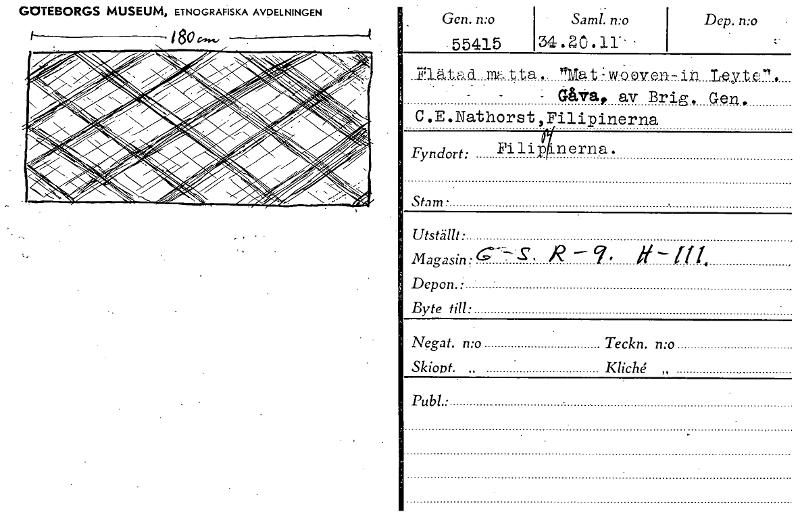 GÖTEBORGS MUSEUM, ETNOGRAFISKA AVDELNINGEN
180 cm
Gen. n:o Saml. n:o Dep. n:o
55415 34.20.11
Flätad matta. "Mat wooven-in Leyte".
Gåva, av Brig. Gen.
C.E.Nathorst,Filipinerna
Fyndort: Filipinerna.
Stam:
Utställt:
Magasin: G-S. R-9. H-III.
Depon.:
Byte till:
Negat. n:o Teckn. n:o
Skiopt. „ Kliché „
Publ.: